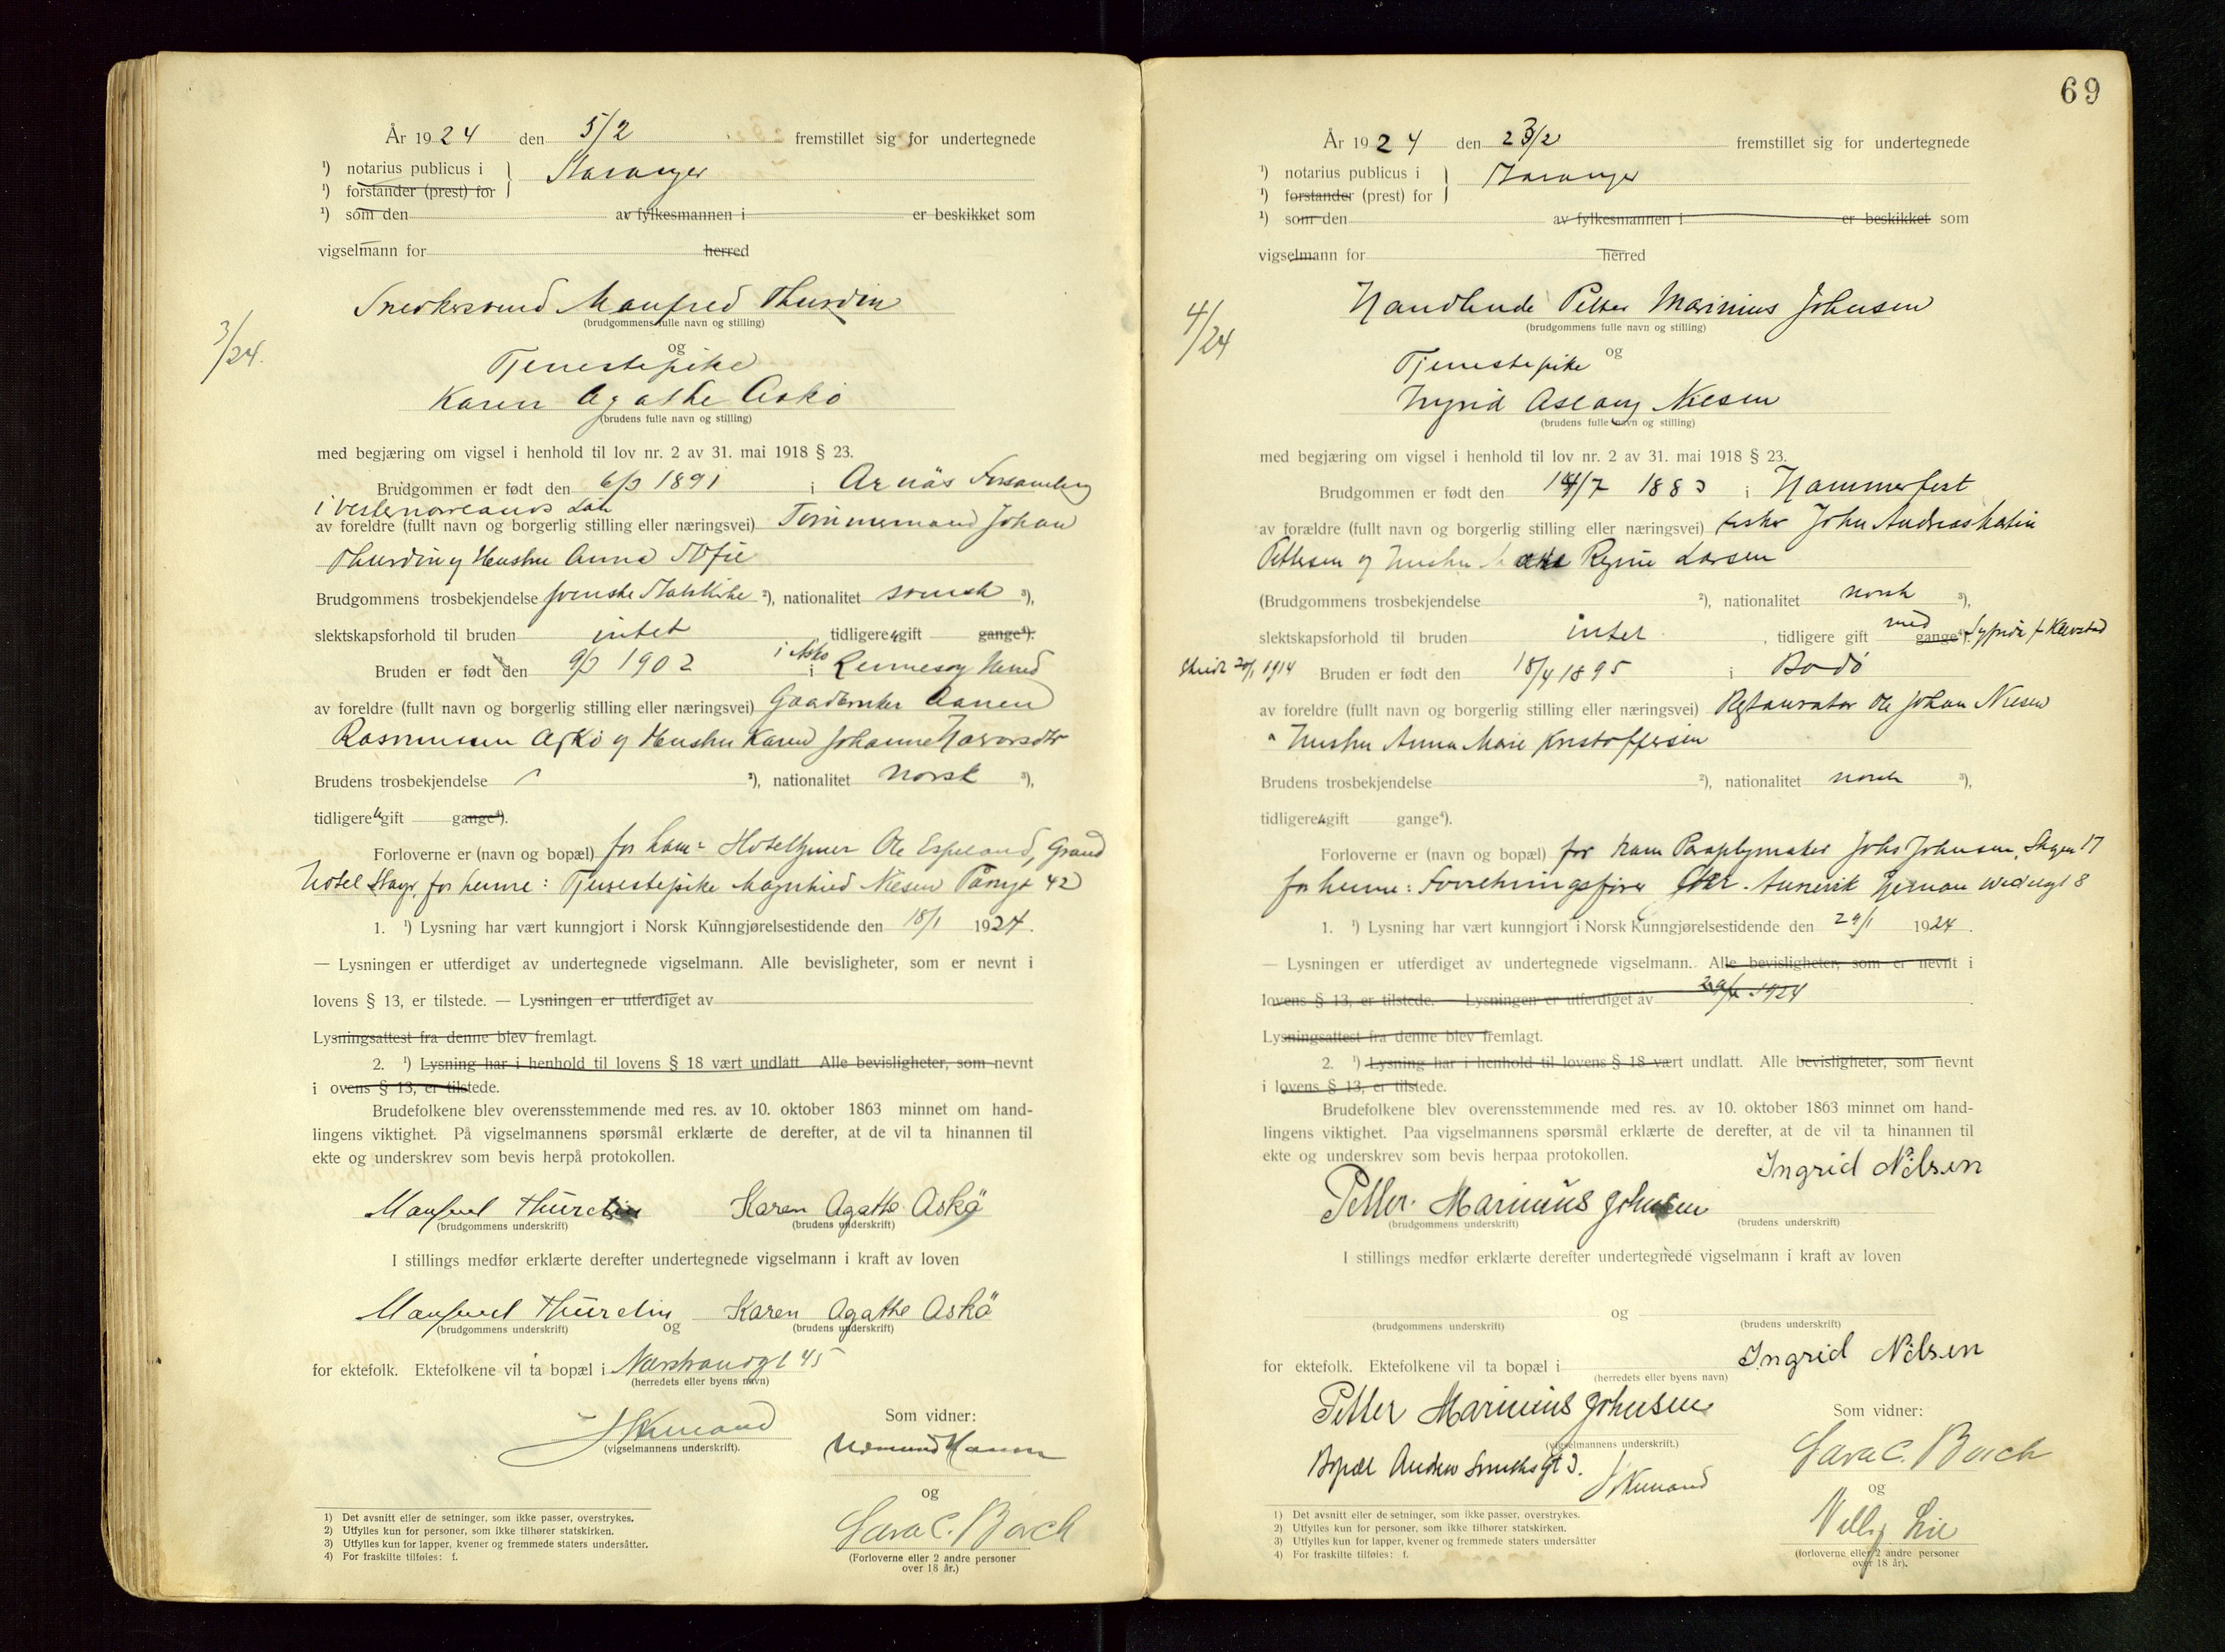 År 1924 den 5/2 fremstillet sig for undertegnede
¹) notarius publicus i Stavanger
¹) forstander (prest) for
¹) som den av fylkesmannen i er beskikket som
vigselmann for herred
3/24.
Snedkersvend Manfred Thurdin
(brudgommens fulle navn og stilling)
og
Tjenestepike
Karen Agathe Askö
(brudens fulle navn og stilling)
med begjæring om vigsel i henhold til lov nr. 2 av 31. mai 1918 § 23.
Brudgommen er født den 6/3 1891 i Arnäs Forsamling
i Vesternorrlands Län
av foreldre (fullt navn og borgerlig stilling eller næringsvei) Tømmermand Johan
Thurdin og Hustru Anna Sofie
Brudgommens trosbekjendelse svenske Statskirke ²), nationalitet svensk ³),
slektskapsforhold til bruden intet tidligere gift gange⁴).
Bruden er født den 9/3 1902 i Askø i Rennesøy Herred
av foreldre (fullt navn og borgerlig stilling eller næringsvei) Gaardbruker Aanen
Rasmussen Askø og Hustru Karen Johanne
Brudens trosbekjendelse ²), nationalitet norsk ³),
tidligere gift gange⁴).
Forloverne er (navn og bopæl) for ham: Hoteleier Ole Espeland, Grand
Hotel Stavgr, for henne: Tjenestepike Magnhild Nilsen 42
1. ¹) Lysning har vært kunngjort i Norsk Kunngjørelsestidende den 18/1 1924.
— Lysningen er utferdiget av undertegnede vigselmann. Alle bevisligheter, som er nevnt i
lovens § 13, er tilstede. — Lysningen er utferdiget av
Lysningsattest fra denne blev fremlagt.
2. ¹) Lysning har i henhold til lovens § 18 vært undlatt Alle bevisligheter, som nevnt
i ovens § 13, er tilstede.
Brudefolkene blev overensstemmende med res. av 10. oktober 1863 minnet om hand-
lingens viktighet. På vigselmannens spørsmål erklærte de derefter, at de vil ta hinannen til
ekte og underskrev som bevis herpå protokollen.
Manfred Thurdin Karen Agathe Askö
(brudgommens underskrift) (brudens underskrift)
I stillings medfør erklærte derefter undertegnede vigselmann i kraft av loven
Manfred Thurdin Karen Agathe Askö
(brudgommens underskrift) og (brudens underskrift)
for ektefolk. Ektefolkene vil ta bopæl i Nærstrandgt 45
(herredets eller byens navn)
Som vidner:
(vigselmannens underskrift).
og
Sara C. Borch
(Forloverne eller 2 andre personer
over 18 år.)
1) Det avsnitt eller de setninger, som ikke passer, overstrykes.
2) Utfylles kun for personer, som ikke tilhører statskirken.
3) Utfylles kun for lapper, kvener og fremmede staters undersåtter.
4) For fraskilte tilføies: f.
69
År 1924 den 23/2 fremstillet sig for undertegnede
¹) notarius publicus i Stavanger
¹) forstander (prest) for
¹) som den av fylkesmannen i er beskikket som
vigselmann for herred
4/24
Handlende Petter Marinius Johnsen
(brudgommens fulle navn og stilling)
og
Tjenestepike
Ingrid Aslaug Nilsen
(brudens fulle navn og stilling)
med begjæring om vigsel i henhold til lov nr. 2 av 31. mai 1918 § 23.
Brudgommen er født den 14/7 1883 i Hammerfest
av forældre (fullt navn og borgerlig stilling eller næringsvei) fisker John Andreas Martin
Pettersen og Hustru Regine Larsen
(Brudgommens trosbekjendelse ²), nationalitet norsk ³),
slektskapsforhold til bruden intet, tidligere gift gange⁴) med
1914 Bruden er født den 18/4 1895 i Bodö
av foreldre (fullt navn og borgerlig stilling eller næringsvei) Restauratør Ole Johan Nilsen
Hustru Anna Marie Kristoffersen
Brudens trosbekjendelse ²), nationalitet norsk ³),
tidligere gift gange⁴).
Forloverne er (navn og bopæl) for ham Paraplymaker Johs Johnsen, Skagen 17
for henne: Forretningsfører
1. ¹) Lysning har vært kunngjort i Norsk Kunngjørelsestidende den 29/1 1924.
— Lysningen er utferdiget av undertegnede vigselmann. Alle bevisligheter, som er nevnt i
lovens § 13, er tilstede. — Lysningen er utferdiget av 29/1 1924
Lysningsattest fra denne blev fremlagt.
2. ¹) Lysning har i henhold til lovens § 18 vært undlatt. Alle bevisligheter, som nevnt
i lovens § 13, er tilstede.
Brudefolkene blev overensstemmende med res. av 10. oktober 1863 minnet om hand-
lingens viktighet. Paa vigselmannens spørsmål erklærte de derefter, at de vil ta hinannen til
ekte og underskrev som bevis herpaa protokollen.
Ingrid Nilsen
Petter Marinius Johnsen
(brudgommens underskrift) (brudens underskrift)
I stillings medfør erklærte derefter undertegnede vigselmann i kraft av loven
og
(brudgommens underskrift) (brudens underskrift)
Ingrid Nilsen
for ektefolk. Ektefolkene vil ta bopæl i
(herredets eller byens navn)
Petter Marinius Johnsen
Som vidner:
(vigselmannens underskrift.)
Sara C. Borch
Bopæl Andrew Smithsgt 3.
og
Lie
(forloverne eller 2 andre personer
over 18 år).
1) Det avsnitt eller de setninger, som ikke passer, overstrykes.
2) Utfylles kun for personer, som ikke tilhører statskirken.
3) Utfylles kun for lapper, kvener og fremmede staters undersåtter
4) For fraskilte tilføies: f.